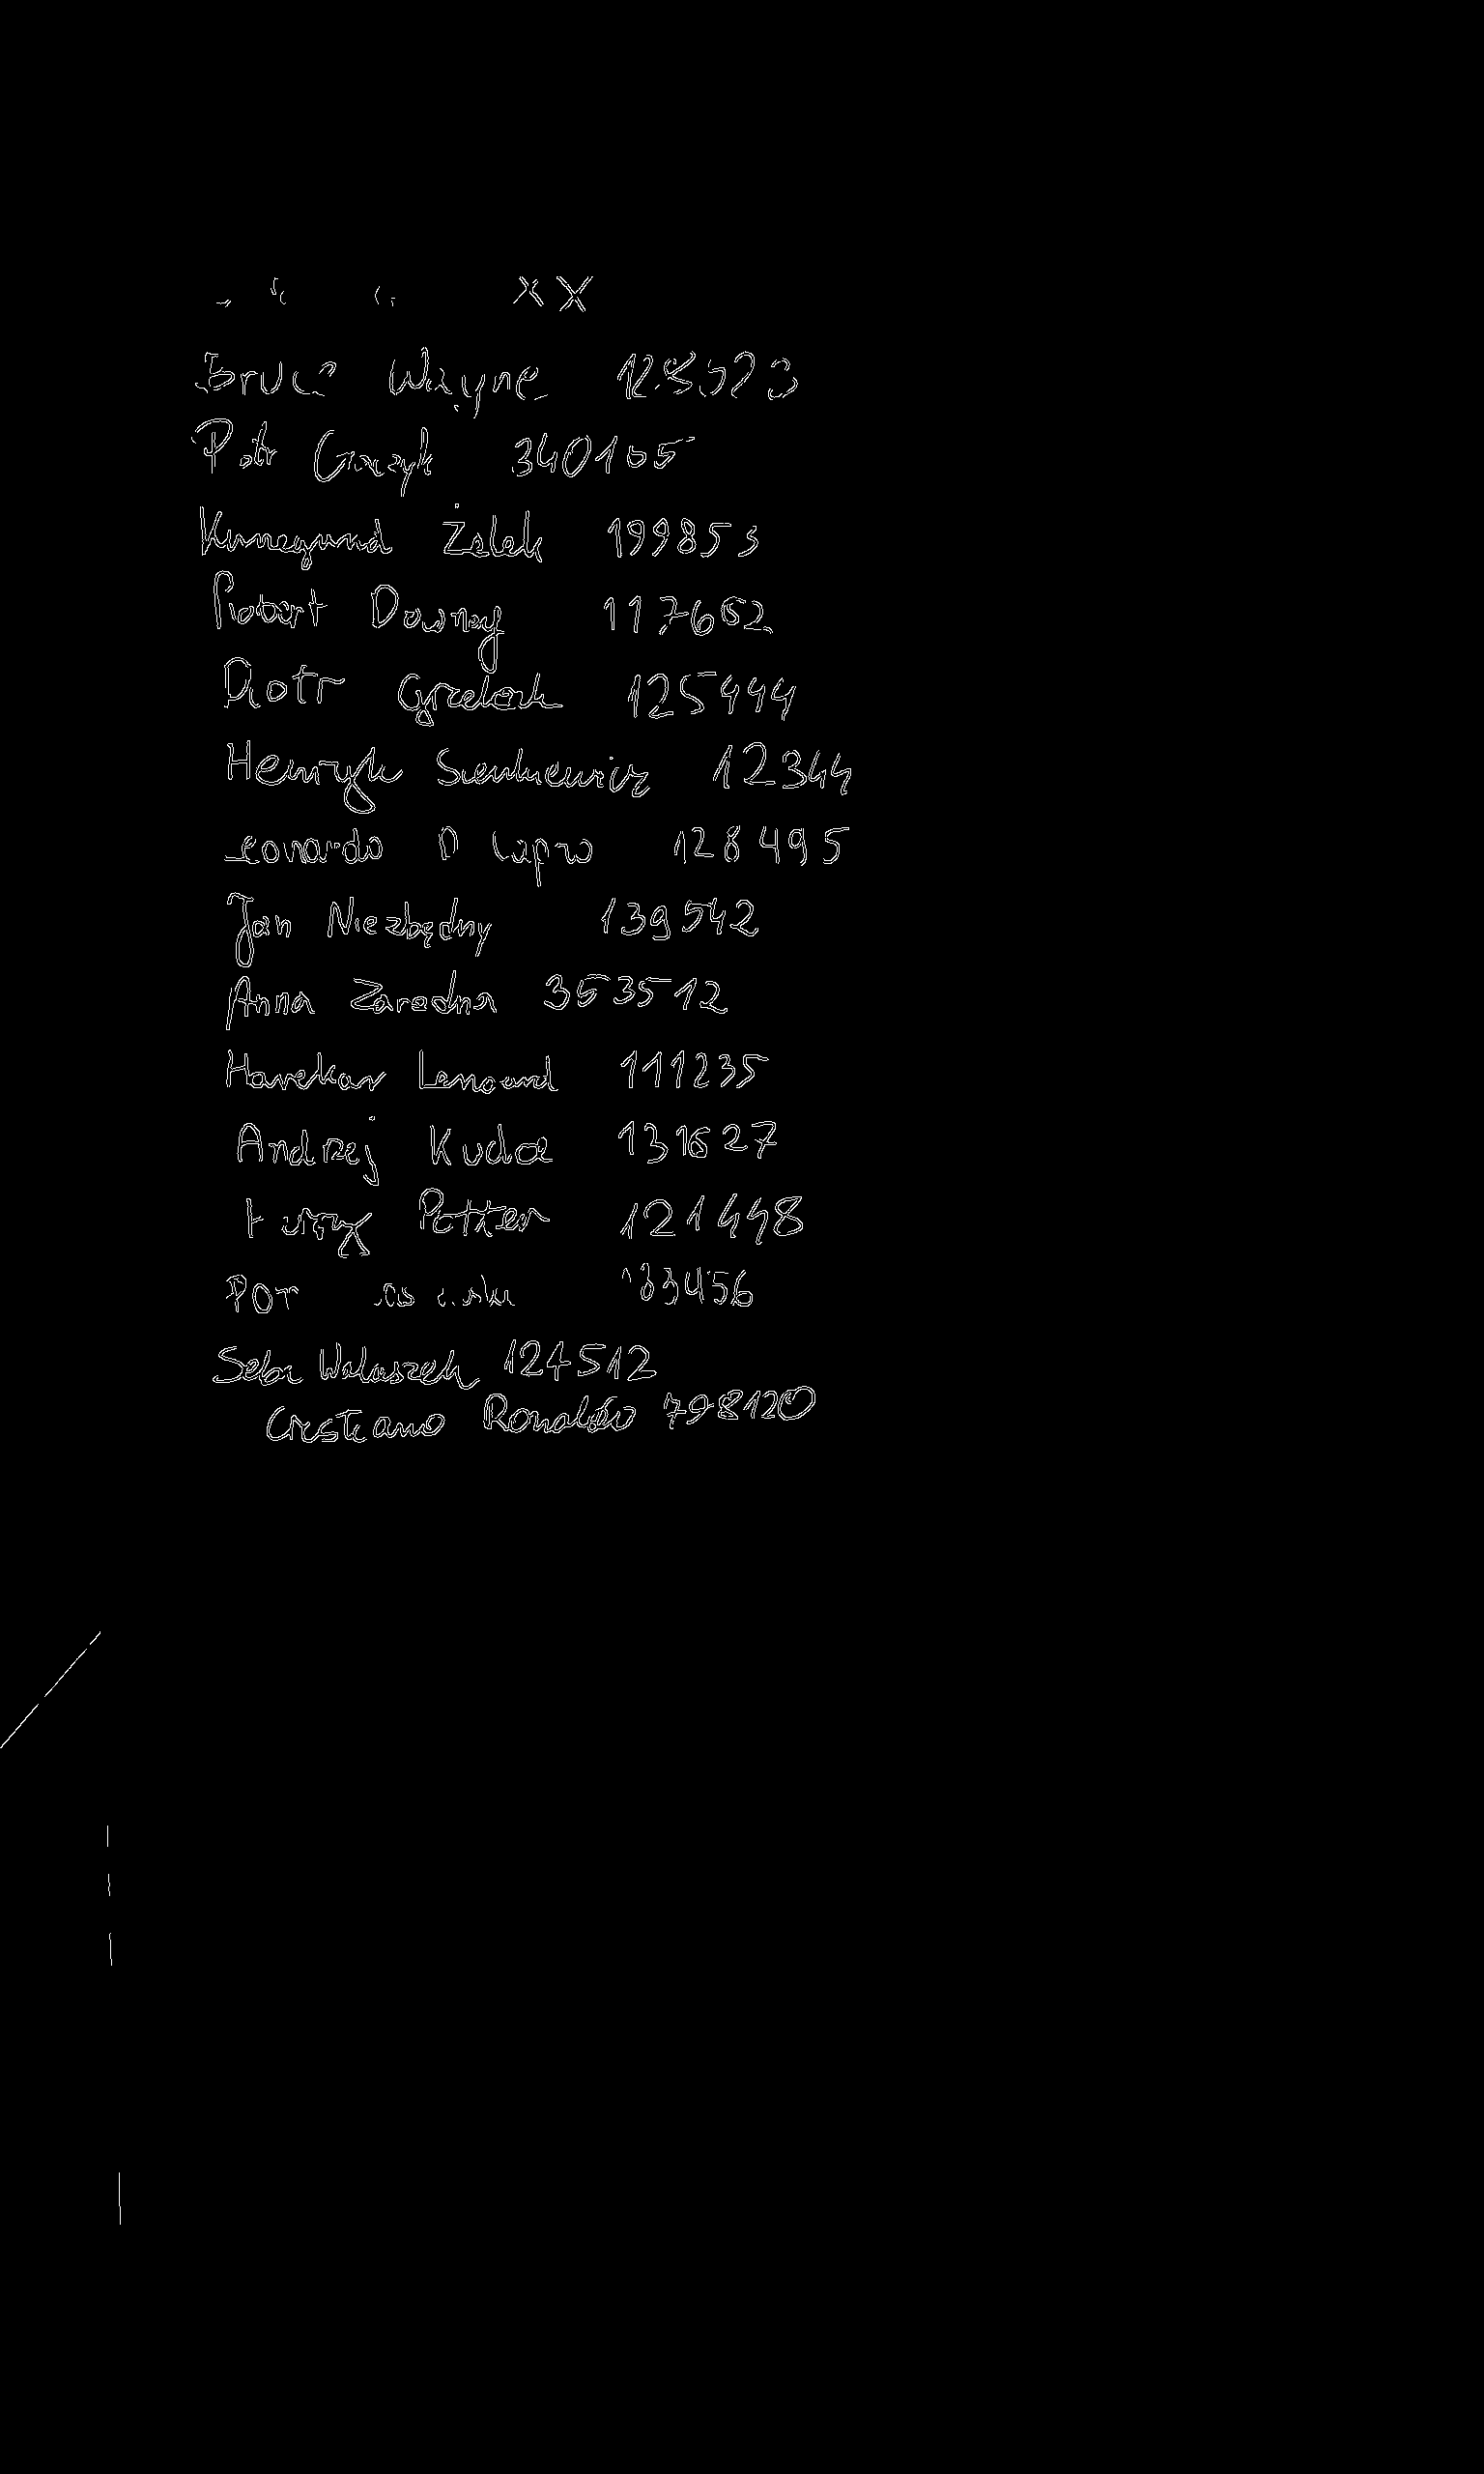 XX
Bruce Wayne
Piotr 340105
Kunegund Żelek 199853
Robert Downey 117662
Piotr Grzelak 125444
Henryk Sienkiewicz 12344
Leonardo D Caprio 128495
Jan Niezbędny 139542
Anna Zaradna 353512
Harekar Lenard 111235
Andrzej Kudoe 131627
Harry Potter 121448
33456
Seba Walaszek 124512
Cristiano Ronaldo 798120